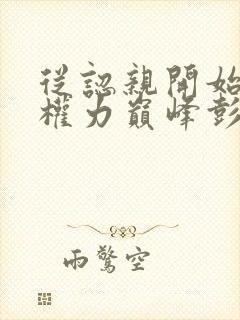 從認親開始
權力巔峰彭
雨驚空